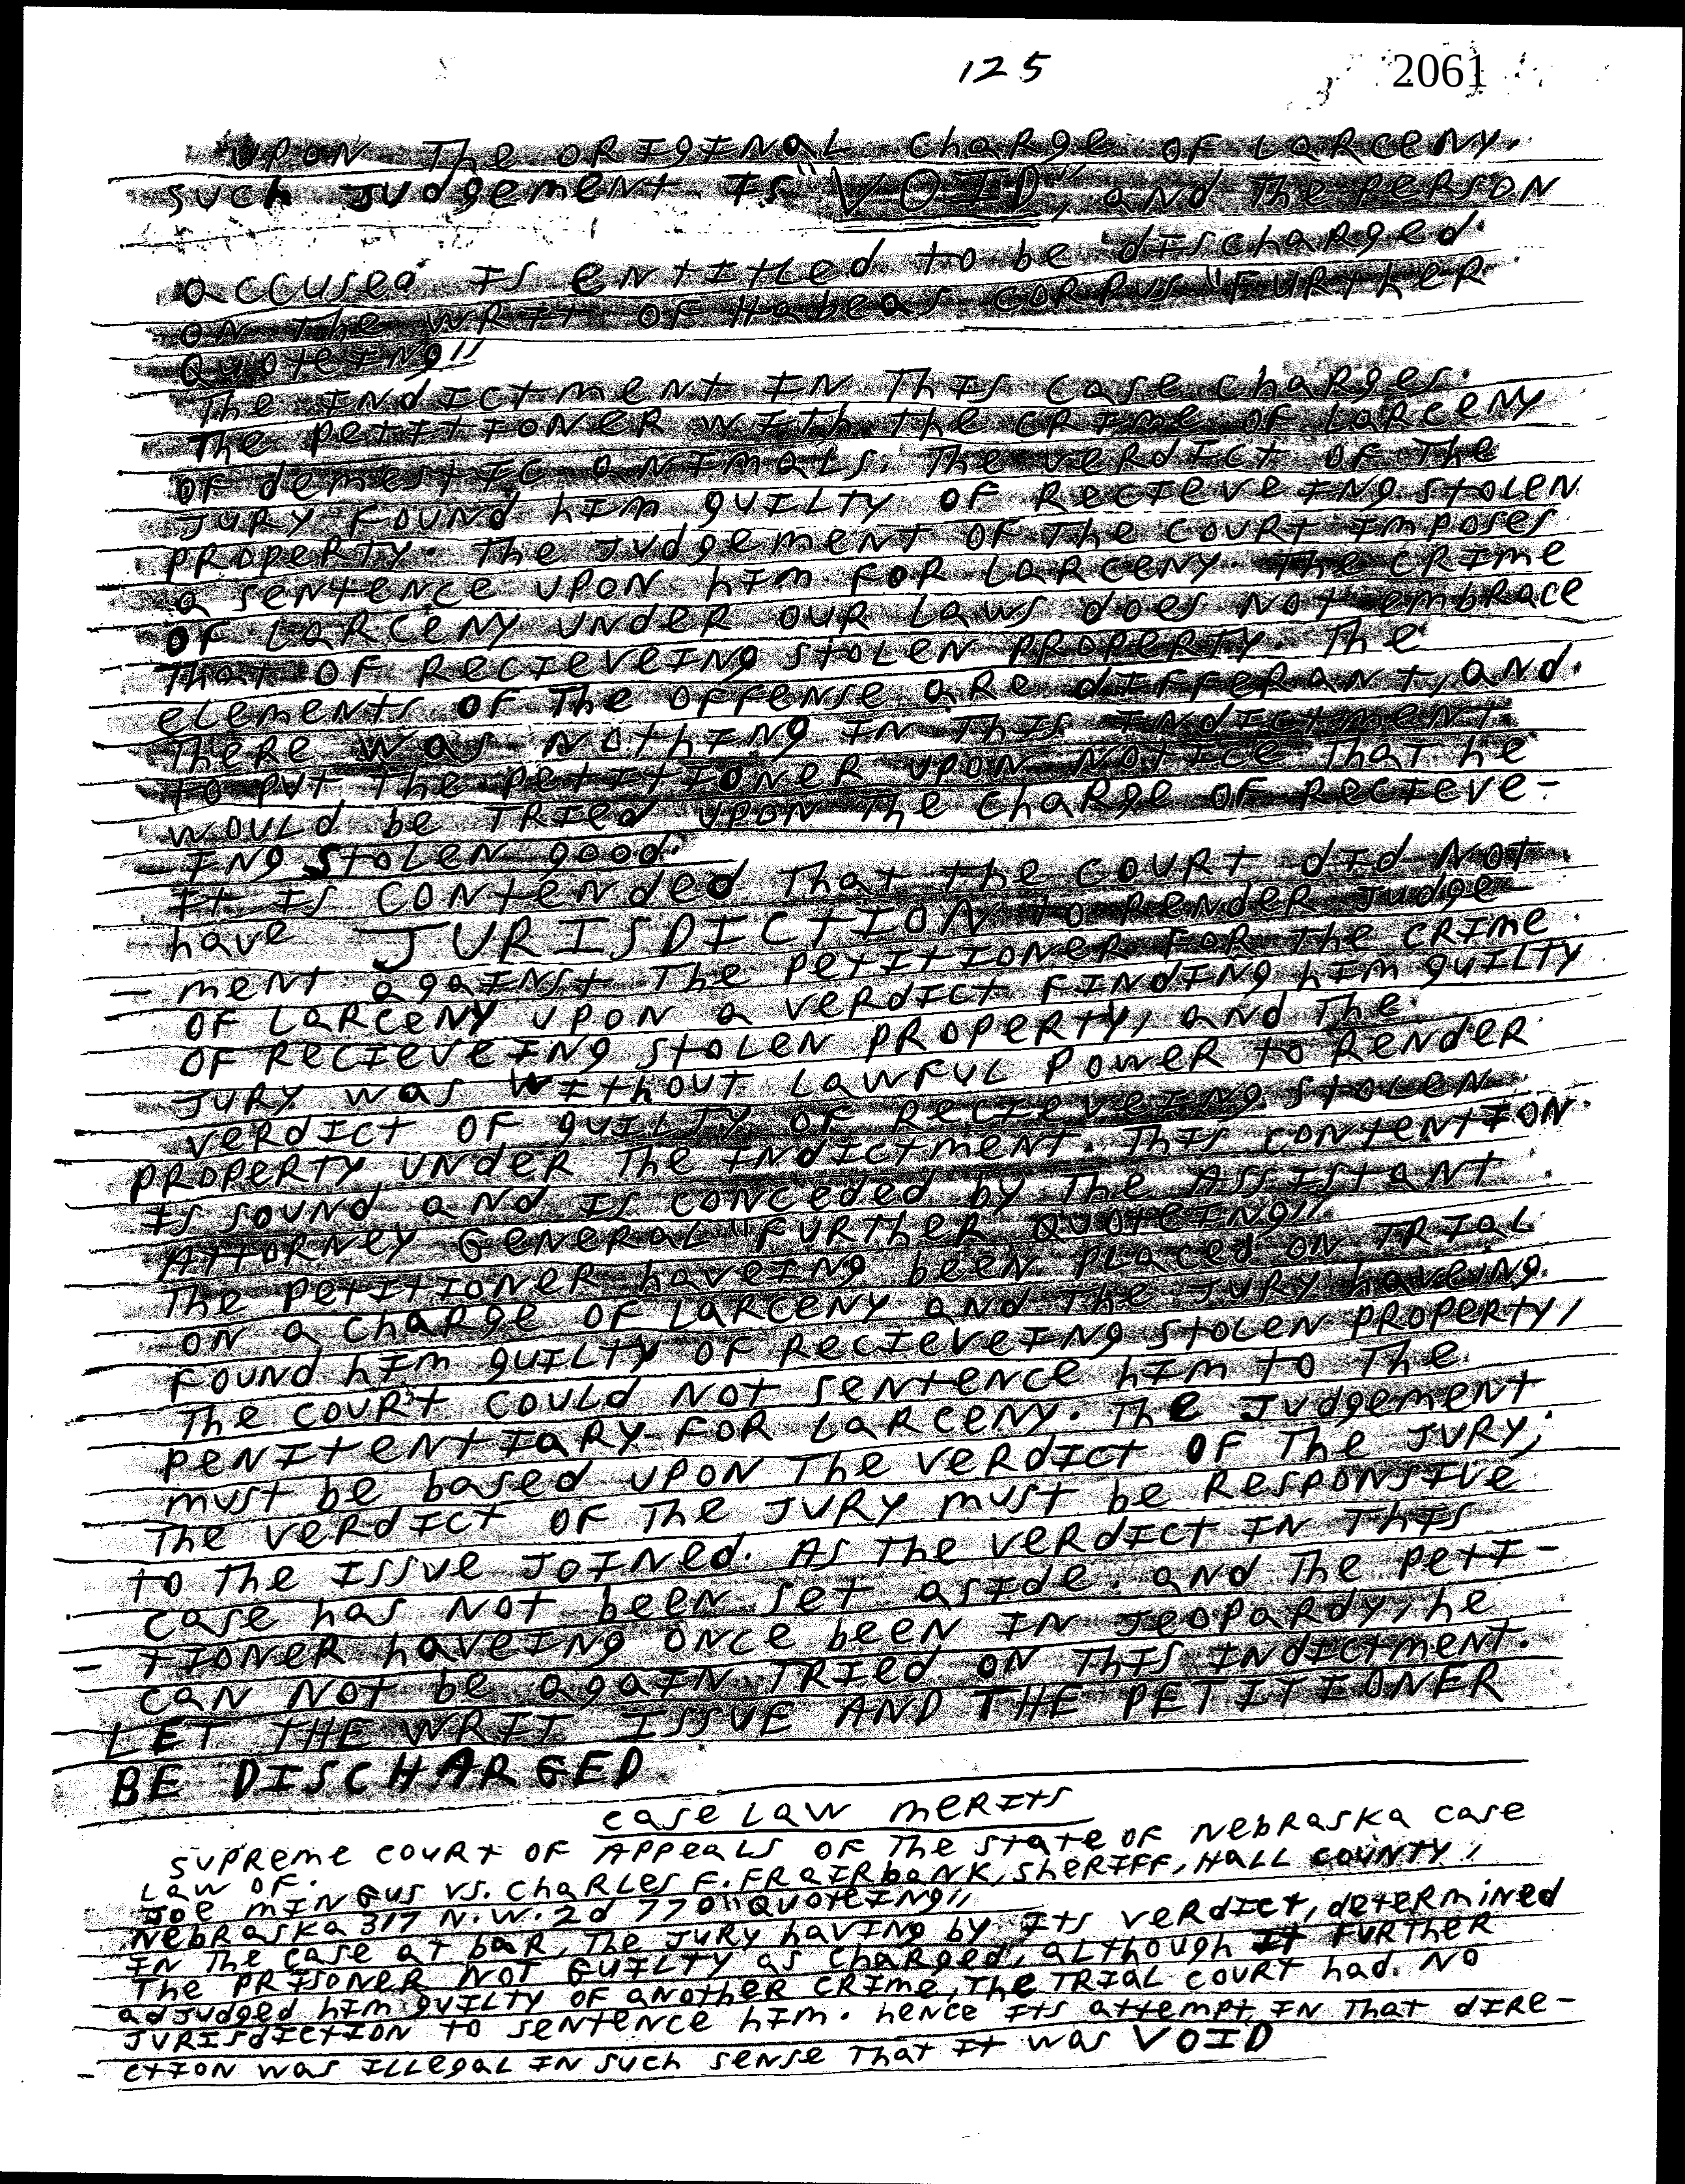 125
2061
"UPON The ORIGINAL ChaRge OF LaRCeNy.
such Judgement Is "VOID", and The PERSON
accused Is entitled to be discharged
on the WRIT OF Habeas CORPUS "FURTHER
Quoteing"
The Indictment IN This case charges
The petitioner with the crime OF LaRCeNy
OF demestic animals. The verdict OF The
JURY Found him guilty OF Recieveing stolen
PROPERTY. The Judgement OF The Court Imposes
a sentence upon him FOR LaRCeNy. The crime
OF LaRCeNy under our Laws does not embrace
That OF Recieveing stolen PROPERTY. The
elements OF The offense are differant, and
There was nothing IN This Indictment
to put the petitioner upon notice That he
would be TRIed upon The charge OF Recieve-
ing stolen good.
It Is contended That the court did not
have JURISDICTION to Render Judge
- ment against The petitioner FOR The crime
OF LaRCeNy upon a verdict Finding him guilty
OF Recieveing stolen PROPERTY, and The
JURY was without Lawful Power to Render
verdict OF guilty OF Recieveing stolen
PROPERTY under The Indictment. This contention
Is sound and Is conceded by The Assistant
Attorney General "FURTHER Quoteing"
The petitioner haveing been placed on TRIAL
on a charge OF LaRCeNy and the JURY haveing
Found him guilty OF Recieveing stolen PROPERTY,
The Court could not sentence him to The
penitentiary FOR LaRCeNy. The Judgement
must be based upon The verdict OF The JURY;
The verdict OF The JURY must be Responsive
to The Issue Joined. As The verdict IN This
case has not been set aside. and The peti-
- tioner haveing once been IN Jeopardy, he
can not be again TRIed on This Indictment.
LET THE WRIT ISSUE AND THE PETITIONER
BE DISCHARGED
case Law merits
Supreme Court OF Appeals OF The State OF Nebraska case
Law OF.
Joe MINGUS VS. Charles F. FRAIRbANK, SheRIFF, HALL COUNTY,
Nebraska 317 N.W.2d 770 "QUOTEING"
IN The case at bar, The JURY having by Its verdict, determined
The PRISONER NOT GUILTY as charged, although It FURTHER
adJudged him guilty OF another crime, The TRIAL court had. NO
JURISdiction to sentence him. hence Its attempt IN That dire-
- ction was ILLegal IN such sense That It was VOID